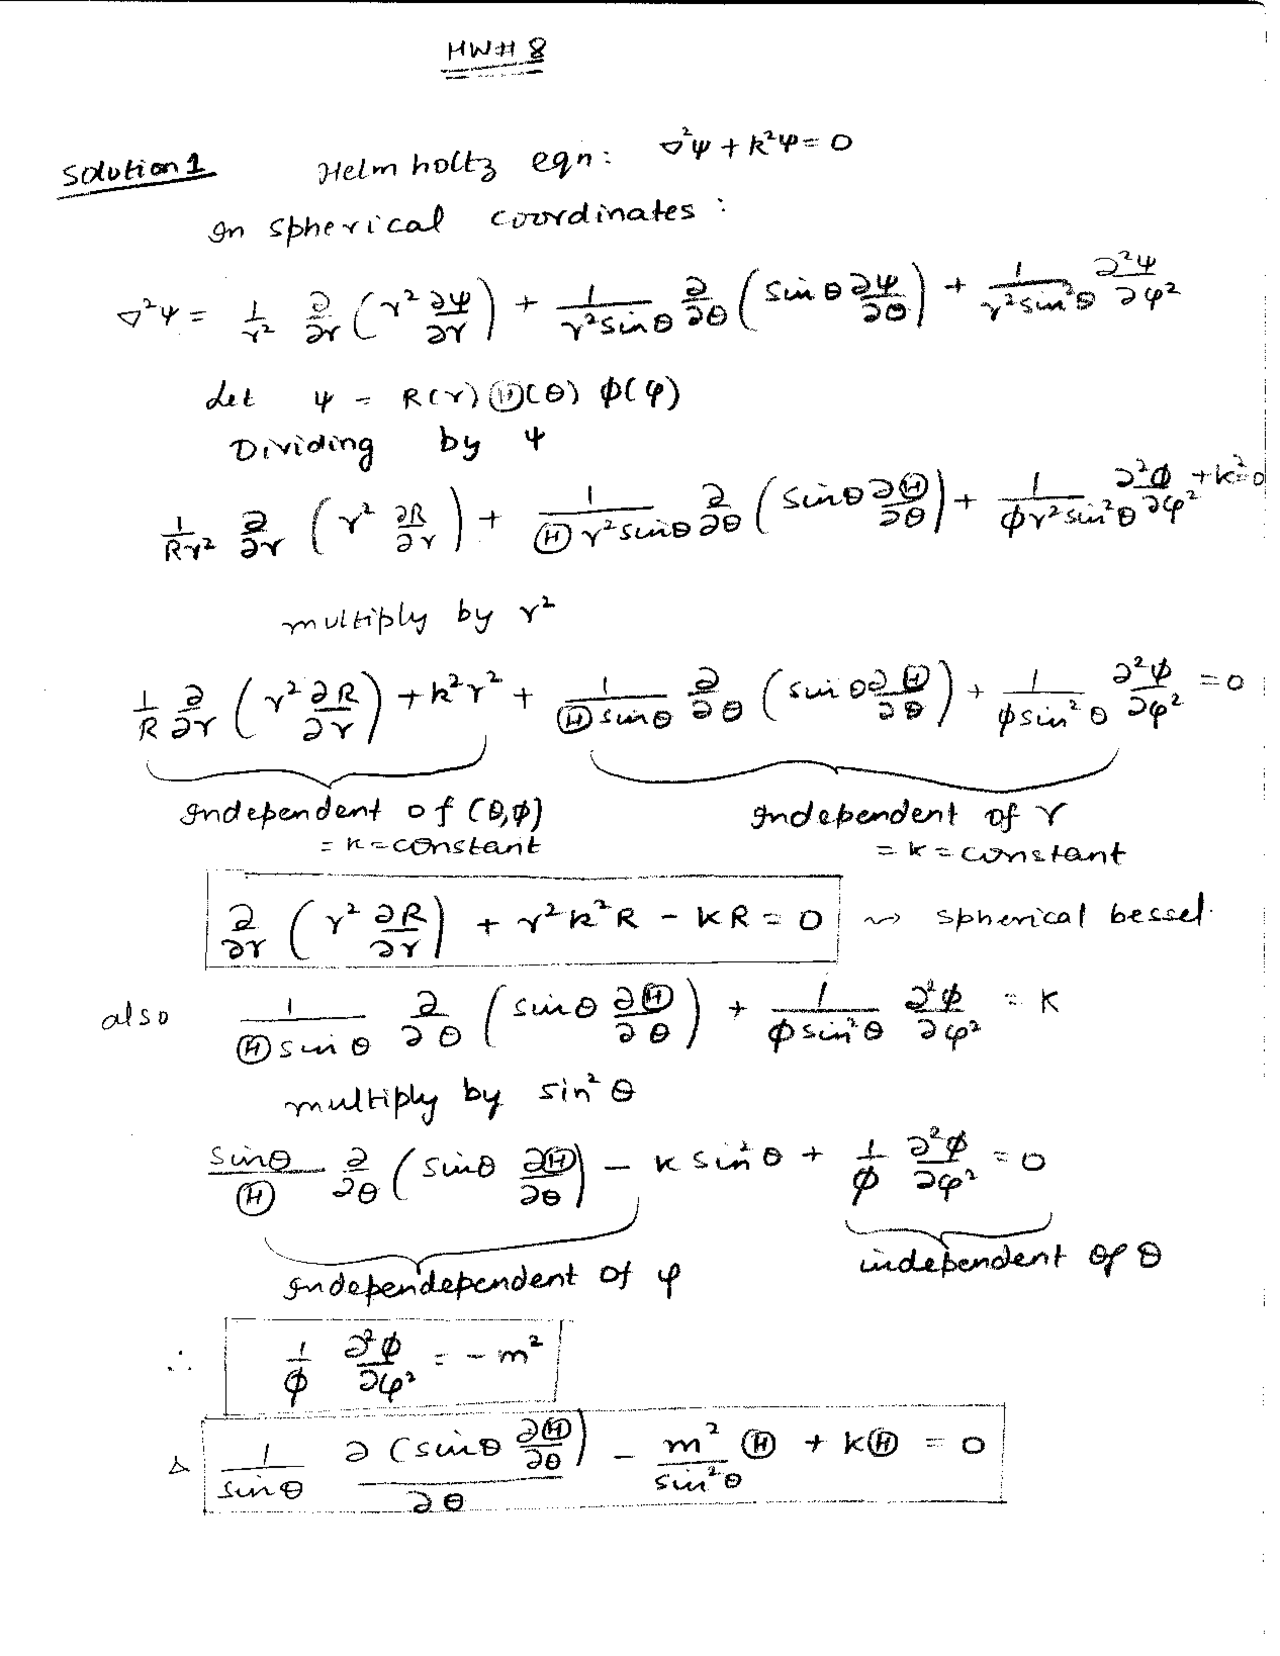 HW# 8
Solution 1 Helmholtz eqn: ∇²ψ + k²ψ = 0
In Spherical coordinates:
∇²ψ = 1/r² ∂/∂r (r² ∂ψ/∂r) + 1/(r² sinθ) ∂/∂θ (sinθ ∂ψ/∂θ) + 1/(r² sin²θ) ∂²ψ/∂φ²
Let ψ = R(r) Θ(θ) ϕ(φ)
Dividing by ψ
1/(Rr²) ∂/∂r (r² ∂R/∂r) + 1/(Θ r² sinθ) ∂/∂θ (sinθ ∂Θ/∂θ) + 1/(ϕ r² sin²θ) ∂²ϕ/∂φ² + k² = 0
multiply by r²
1/R ∂/∂r (r² ∂R/∂r) + k²r² + 1/(Θ sinθ) ∂/∂θ (sinθ ∂Θ/∂θ) + 1/(ϕ sin²θ) ∂²ϕ/∂φ² = 0
Independent of (θ,ϕ) Independent of r
= K = constant = K = constant
∂/∂r (r² ∂R/∂r) + r²k²R - KR = 0 ⇝ spherical bessel.
also 1/(Θ sinθ) ∂/∂θ (sinθ ∂Θ/∂θ) + 1/(ϕ sin²θ) ∂²ϕ/∂φ² = K
multiply by sin²θ
sinθ/Θ ∂/∂θ (sinθ ∂Θ/∂θ) - K sin²θ + 1/ϕ ∂²ϕ/∂φ² = 0
Independependent of φ independent of θ
∴ 1/ϕ ∂²ϕ/∂φ² = -m²
& 1/sinθ ∂(sinθ ∂Θ/∂θ)/∂θ - m²/sin²θ Θ + KΘ = 0